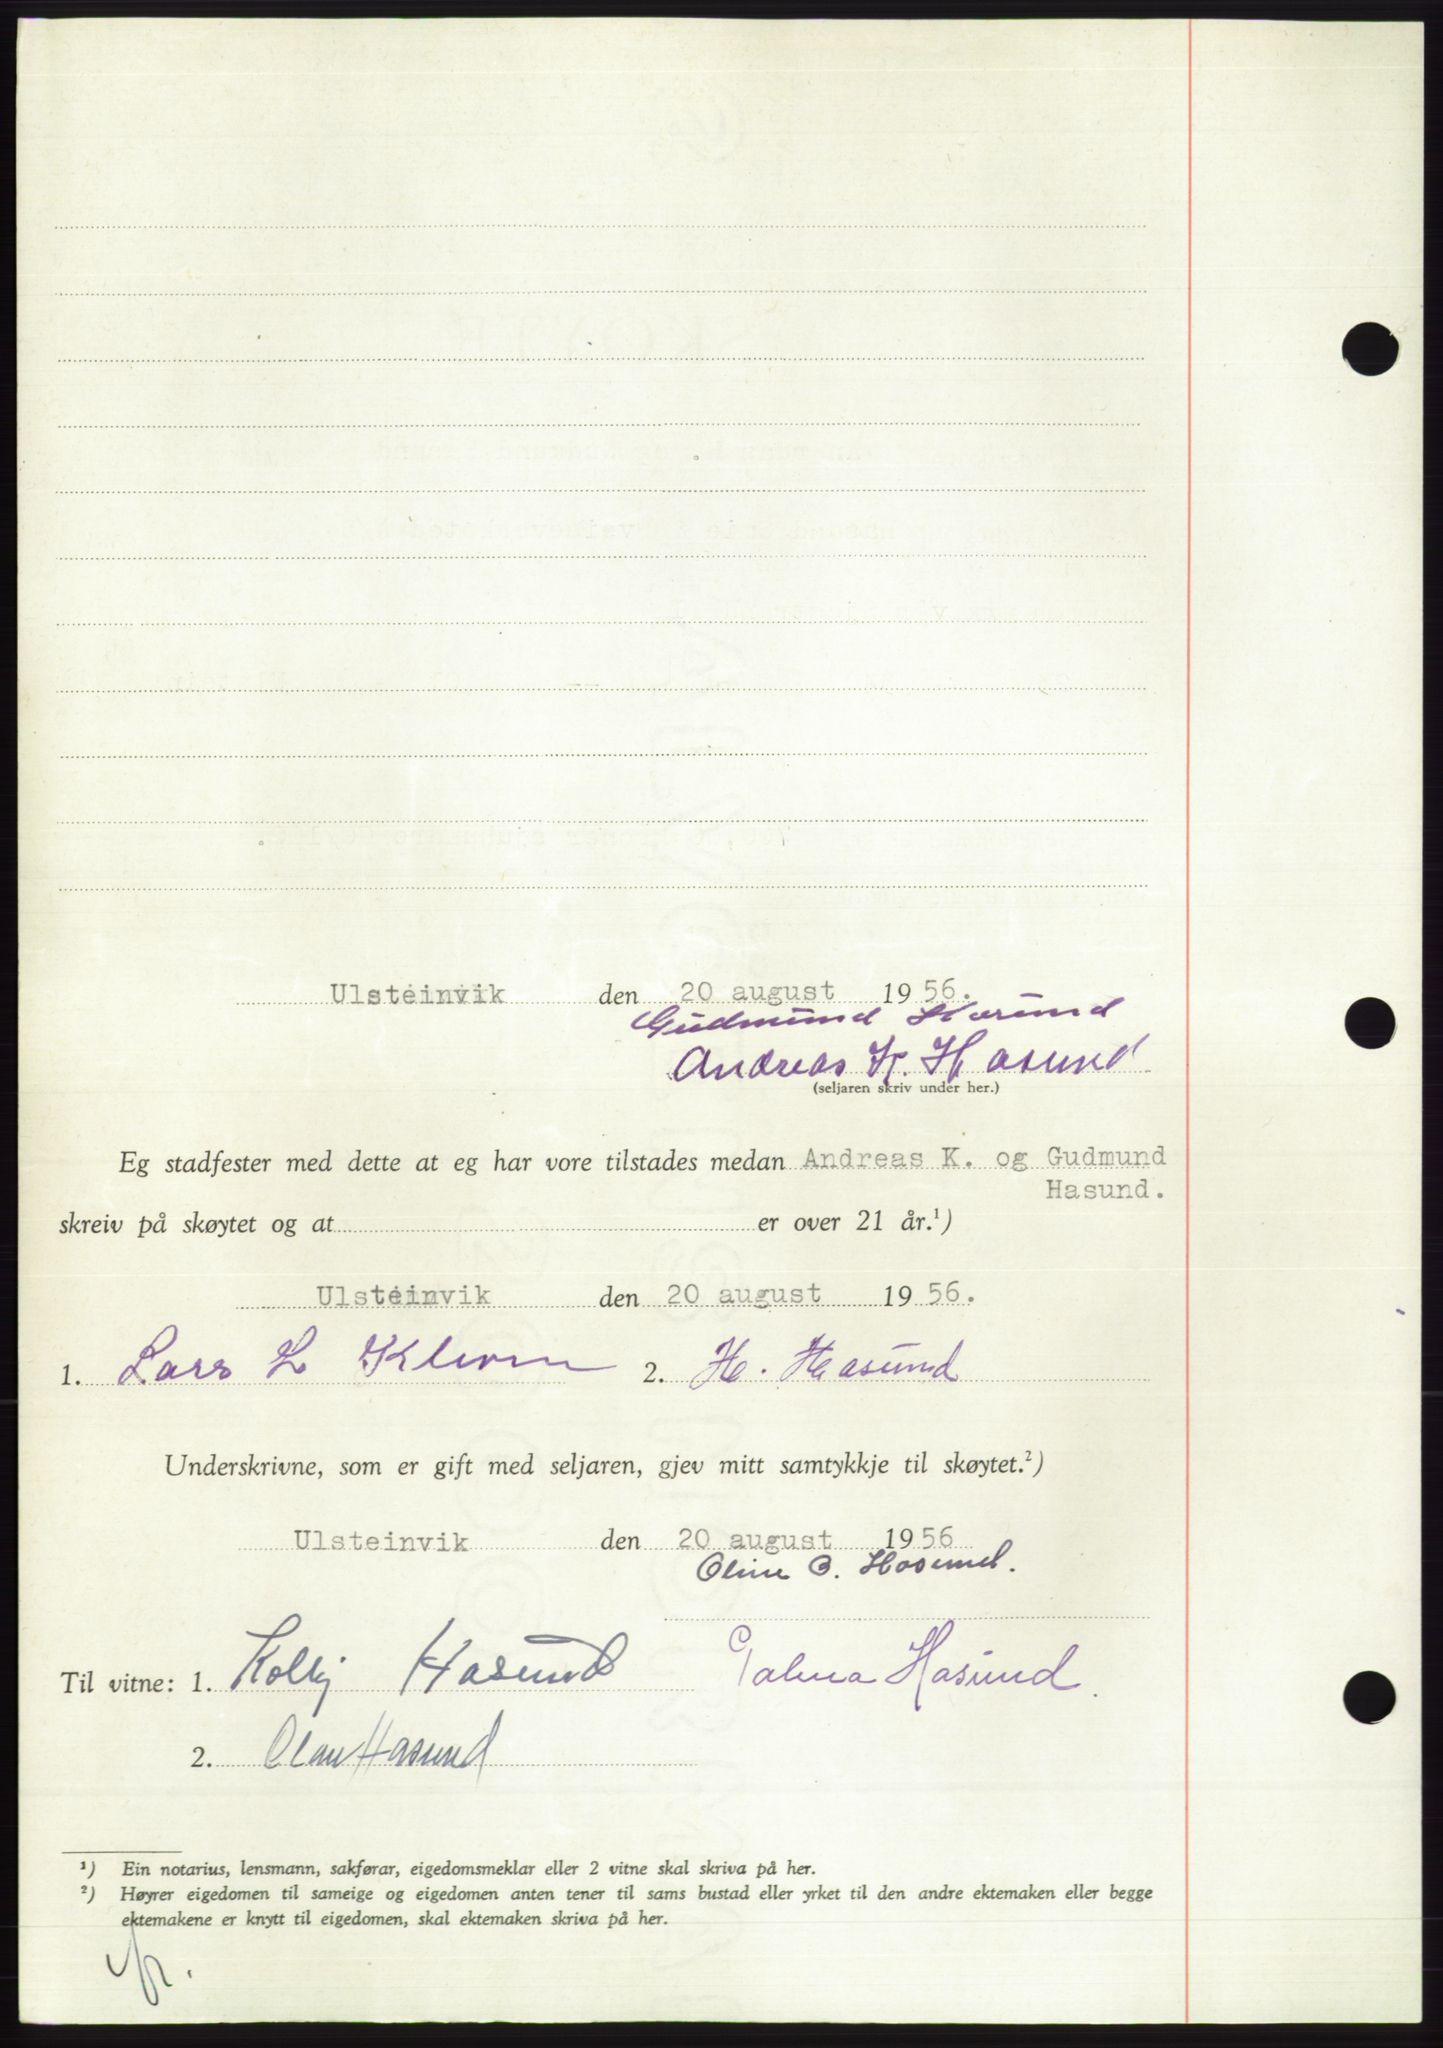 Ulsteinvik den 20 august 1956.
Gudmund Hasund
Andreas K. Hasund
(seljaren skriv under her.)
Eg stadfester med dette at eg har vore tilstades medan Andreas K. og Gudmund
Hasund.
skreiv på skøytet og at er over 21 år.¹)
Ulsteinvik den 20 august 1956.
1. Lars L Kleven 2. H. Hasund
Underskrivne, som er gift med seljaren, gjev mitt samtykkje til skøytet.²)
Ulsteinvik den 20 august 1956
Oline O. Hasund.
Til vitne: 1. Kolbj Hasund Palma Hasund.
2. Olav Hasund
¹) Ein notarius, lensmann, sakførar, eigedomsmeklar eller 2 vitne skal skriva på her.
²) Høyrer eigedomen til sameige og eigedomen anten tener til sams bustad eller yrket til den andre ektemaken eller begge
ektemakene er knytt til eigedomen, skal ektemaken skriva på her.